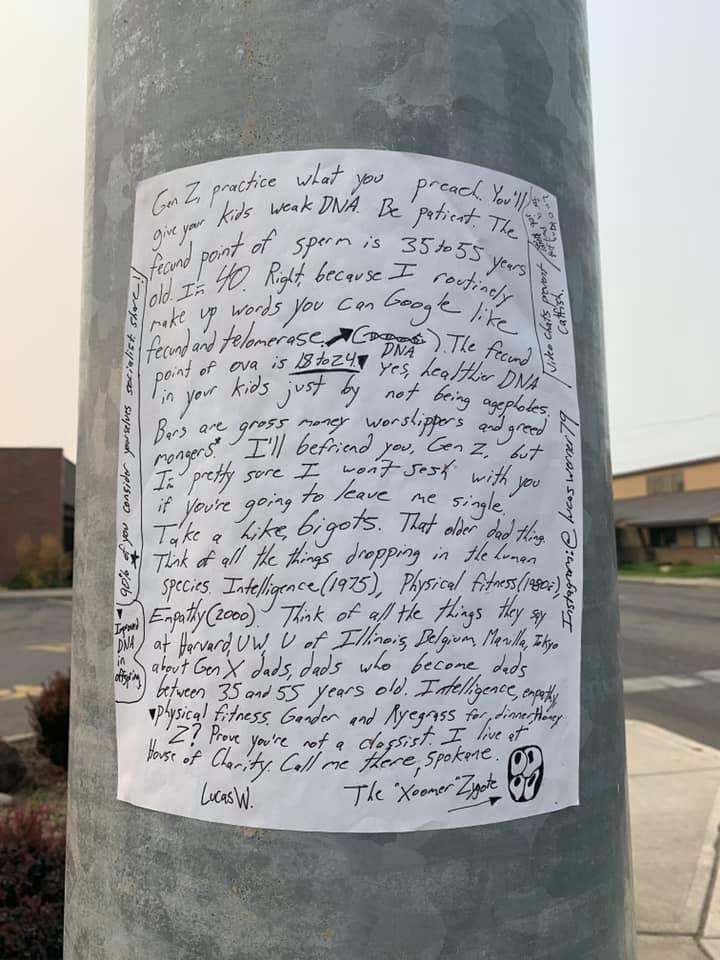 Gen Z, practice what you preach. You'll
give your kids weak DNA. Be patient. The
fecund point of sperm is 35 to 55 years
old. I'm 40. Right, because I routinely
make up words you can Google like
fecund and telomerase. DNA). The fecund
point of ova is 18 to 24. Yes, healthier DNA
in your kids just by not being agephobes.
Bars are gross money worshippers and greed
mongers.* I'll befriend you, Gen Z, but
I'm pretty sure I won't sesh with you
if you're going to leave me single.
Take a hike, bigots. That older dad thing.
Think of all the things dropping in the human
species. Intelligence (1975), Physical fitness (1980s),
Empathy (2000). Think of all the things they say
at Harvard, UW, U of Illinois, Belgium, Manilla, Tokyo
about Gen X dads, dads who become dads
between 35 and 55 years old. Intelligence, empathy,
Physical fitness. Gander and Ryegrass for dinner, Honey
Z? Prove you're not a classist. I live at
House of Charity. Call me there, Spokane.
Lucas W. The "Xoomer" Zygote
90% of you consider yourselves socialist, share!
Improved
DNA
in
offspring
Video Chats prevent
Catfish.
Instagram: @lucaswerner79